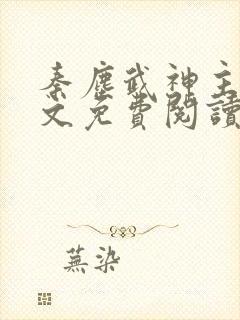 秦塵武神主
文免費閱讀
蕪染